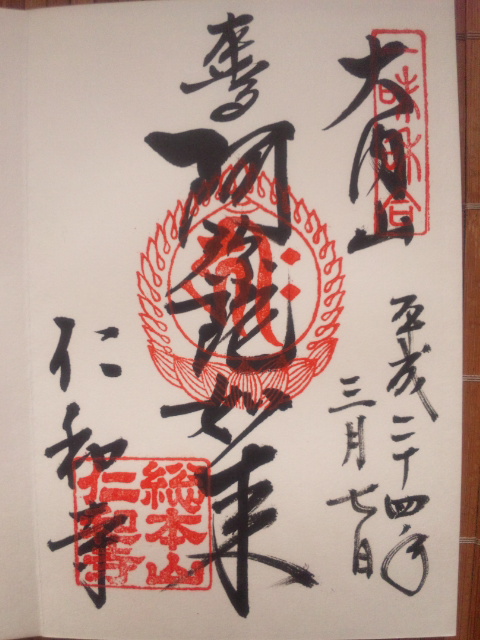 一味和合
大内山
平成二十四年
三月七日
阿弥陀如来
仁和寺
総本山
仁和寺